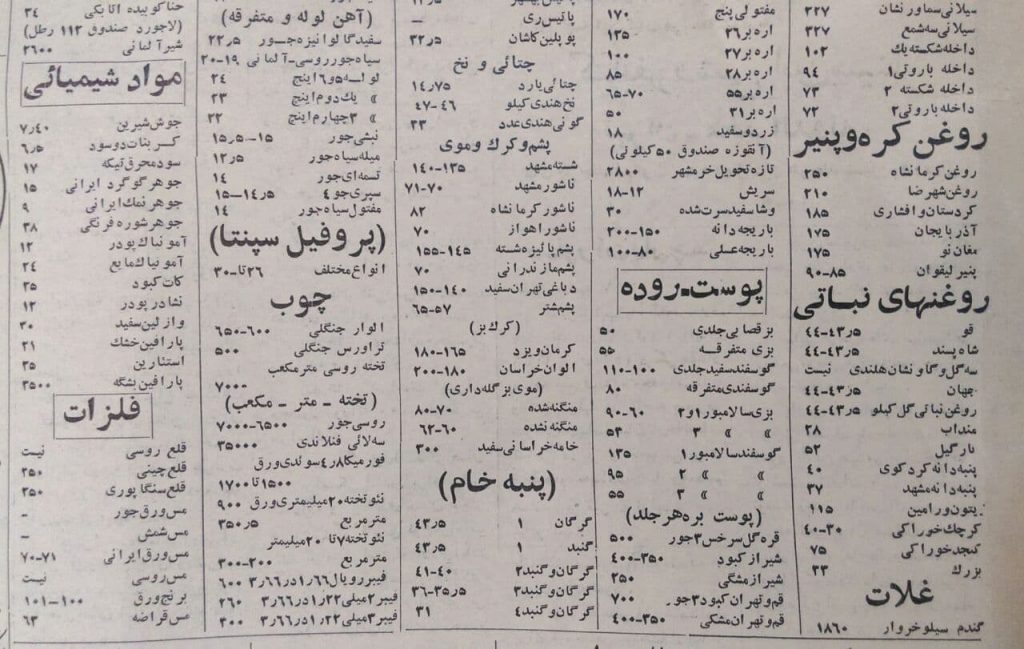 سیلانی سماور نشان ۳۲۷
سیلانی سه شمع ۳۲۷
داخله شکسته یك ۱۰۲
داخله باروتی ۱ ۹۴
داخله شکسته ۲ ۷۳
داخله باروتی ۲ ۷۲
روغن کره و پنیر
روغن کرمانشاه ۲۵۰
روغن شهرضا ۲۱۰
کردستان و افشاری ۱۸۵
آذربایجان ۱۷۵
مغان نو ۱۷۵
پنیر لیقوان ۸۵-۹۰
روغنهای نباتی
قو ۴۳٫۵-۴۴
شاه پسند ۴۳٫۵-۴۴
سه گل و گاو نشان هلندی نیست
جهان ۴۳٫۵-۴۴
روغن نباتی گل کیلو ۴۳٫۵-۴۴
منداب ۲۸
نارگیل ۵۲
پنبه دانه کردکوی ۴۰
پنبه دانه مشهد ۳۷
پتون ورامین ۱۱۵
کرچك خوراکی ۳۰-۴۰
کنجد خوراکی ۷۵
بزرك ۳۳
غلات
گندم سیلو خروار ۱۸۶۰
مفتولی پنج ۱۷۰
اره بر ۲۶ ۱۳۵
اره بر ۲۷ ۱۰۰
اره بر ۲۸ ۸۵
اره بر ۵۵ ۶۵-۷۰
اره بر ۳۱ ۵۰
زرد و سفید ۱۸
(آنقوزه صندوق ۵۰ کیلوئی)
تازه تحویل خرمشهر ۲۸۰۰
سریش ۱۲-۱۸
وشا سفید سرت شده ۳۰
باریجه دانه ۱۵۰-۲۰۰
باریجه عسلی ۸۰-۱۰۰
پوست - روده
بز قصابی جلدی ۵۰
بزی متفرقه ۵۵
گوسفند سفید جلدی ۱۰۰-۱۱۰
گوسفندی متفرقه ۸۰
بزی سالامبور ۱و۲ ۶۰-۹۰
» » ۳ ۵۳
گوسفند سالامبور ۱ ۱۳۵
» » ۲ ۹۵
» » ۳ ۵۵
(پوست بره هر جلد)
قره گل سرخس ۳ جور ۵۰۰
شیراز کبود ۳۵۰-۴۰۰
شیراز مشگی ۲۵۰
قم و تهران کبود ۳ جو ۷۰۰
قم و تهران مشکی ۳۵۰-۴۰۰
پاتیس ری –
پوپلین کاشان ۳۲٫۵
چتائی و نخ
چتائی یارد ۱۴٫۷۵
نخ هندی کیلو ۴۶-۴۷
گونی هندی عدد ۳۳
پشم و کرك و موی
شسته مشهد ۱۳۵-۱۴۰
ناشور مشهد ۷۰-۷۱
ناشور کرمانشاه ۸۲
ناشور اهواز ۷۰
پشم پائیزه شسته ۱۴۵-۱۵۵
پشم مازندرانی ۷۰
دباغی تهران سفید ۱۴۰-۱۵۰
پشم شتر ۵۷-۶۵
(کرك بز)
کرمان و یزد ۱۶۵-۱۸۰
الوان خراسان ۱۸۰-۲۰۰
(موی بز گله داری)
منگنه شده ۷۰-۸۰
منگنه نشده ۶۰-۶۲
خامه خراسانی سفید ۳۰۰
(پنبه خام)
گرگان ۱ ۴۳٫۵
گنبد ۱ ۴۳٫۵
گرگان و گنبد ۲ ۴۰-۴۱
گرگان و گنبد ۳ ۳۵٫۵-۳۶
گرگان و گنبد ۴ ۳۱
(آهن لوله و متفرقه)
سفید گالوانیزه جور ۲۲٫۵
سیاه جور روسی - آلمانی ۱۹-۲۰
لوله ۶و۵ اینچ ۲۴
» یك دوم اینچ ۲۳
» ۳ چهارم اینچ ۲۲
نبشی جور ۱۵-۱۵٫۵
میله سیاه جور ۱۲٫۵
تسمه ای جور ۱۴
سپری جو ۴ ۱۴٫۵-۱۵
مفتول سیاه جور ۱۴
(پروفیل سپنتا)
انواع مختلف ۲۶ تا ۳۰
چوب
الوار جنگلی ۶۰۰-۶۵۰
تراورس جنگلی ۵۰۰
تخته روسی متر مکعب
۷۰۰۰
(تخته - متر - مکعب)
روسی جور ۶۵۰۰-۷۰۰۰
سه لائی فنلاندی ۳۵۰۰۰
فورمیکا ۴٫۸ سوئدی ورق
۱۵۰۰ تا ۱۷۰۰
نئوتخته ۲۰ میلیمتری ورق ۹۰۰
متر مربع ۳۵۰٫۵
نئوتخته ۷ تا ۲۰ میلیمتر
متر مربع ۲۰۰-۳۰۰
فیبر رویال ۱٫۶۶ در ۳٫۶۶ ۶۰۰
فیبر ۲ میلی ۱٫۲۲ در ۳٫۶۶ ۲۶۰
فیبر ۳ میلی ۱٫۲۲ در ۳٫۶۶ ۳۰۰
حنا کوبیده اتابکی ۳۴
(لاجورد صندوق ۱۱۲ رطل)
شیر آلمانی ۲۶۰۰
مواد شیمیائی
جوش شیرین ۷٫۴۰
کربنات دو سود ۶٫۵
سود محرق تیکه ۱۷
جوهر گوگرد ایرانی ۱۵
جوهر نمك ایرانی ۹
جوهر شوره فرنگی ۳۸
آمونیاك پودر ۱۲
آمونیاك مایع ۲۴
کات کبود ۳۵
نشادر پودر ۱۲
وازلین سفید ۳۰
پارافین خشك ۲۱
استئارین ۳۵
پارافین بشگه ۲۵۰۰
فلزات
قلع روسی نیست
قلع چینی ۲۵۰
قلع سنگاپوری ۲۵۰
مس ورق جور –
مس شمش –
مس ورق ایرانی ۷۰-۷۱
مس روسی نیست
برنج ورق ۱۰۰-۱۰۱
مس قراضه ۶۳